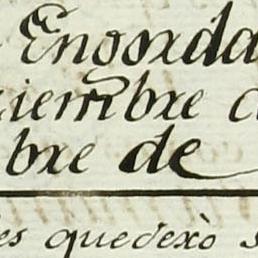 Enorda
ziembre d
bre de
es quedexò s